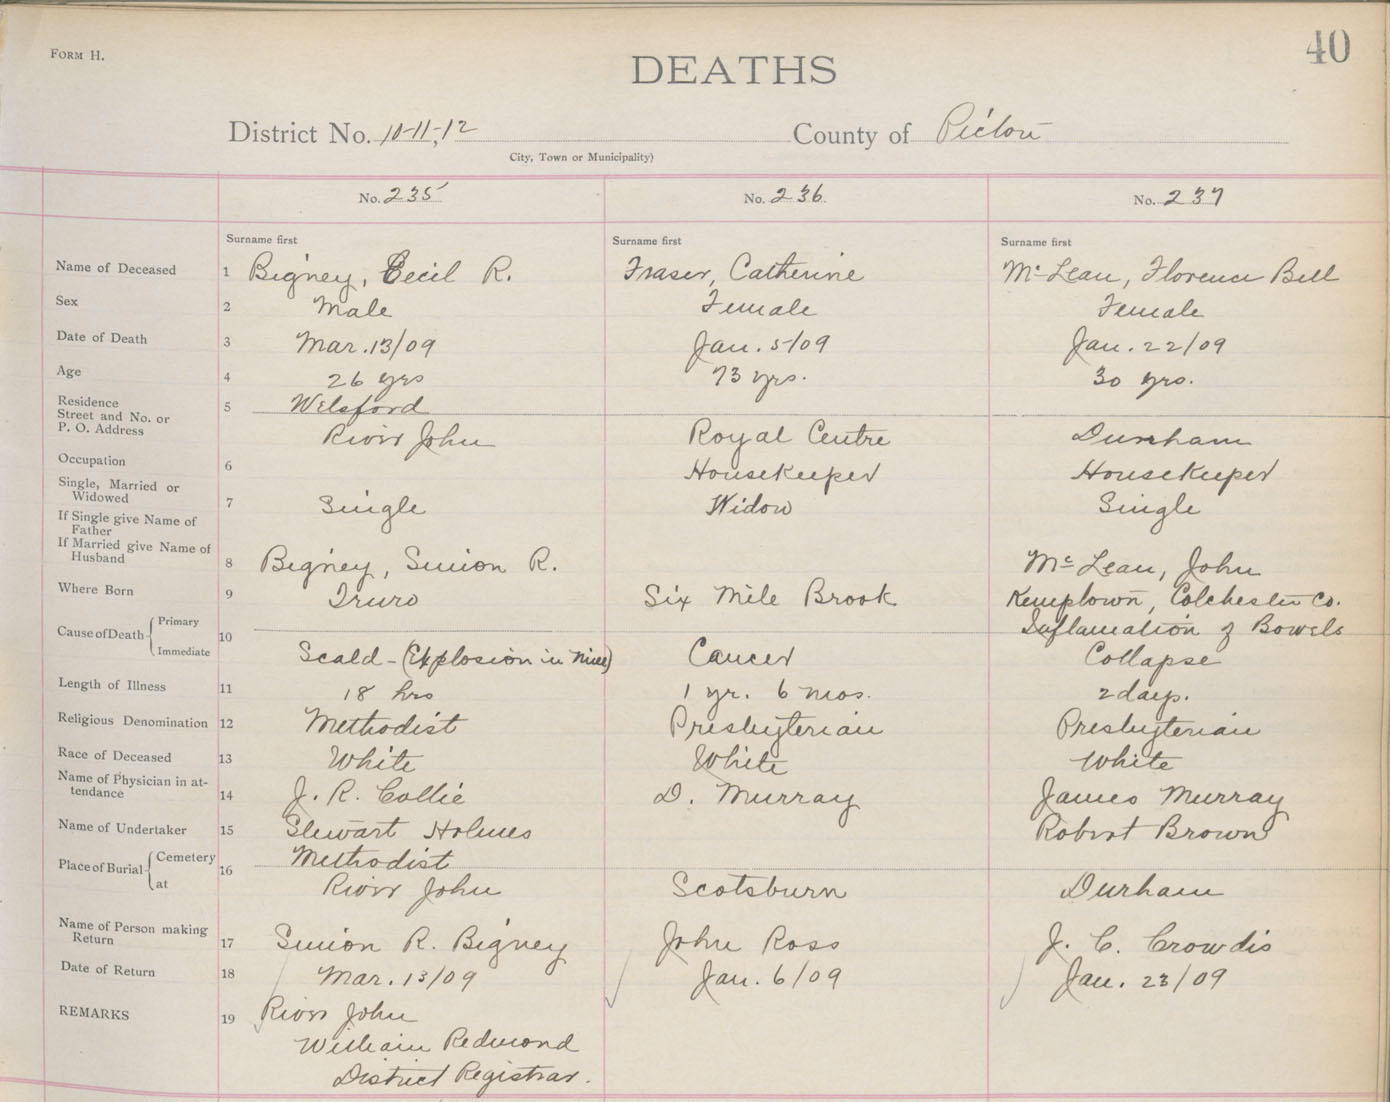 Form H.
40
DEATHS
District No. 10-11, 12 County of Pictou
City, Town or Municipality)
No. 235 No. 236. No. 237
Surname first Surname first Surname first
Name of Deceased 1 Bigney, Cecil R. Fraser, Catherine McLean, Florence Bell
Sex 2 Male Female Female
Date of Death 3 Mar. 13/09 Jan. 5/09 Jan. 22/09
Age 4 26 yrs 73 yrs. 30 yrs.
Residence 5 Welsford
Street and No. or
P. O. Address River John Royal Centre Durham
Occupation 6 Housekeeper Housekeeper
Single, Married or
Widowed 7 Single Widow Single
If Single give Name of
Father
If Married give Name of
Husband 8 Bigney, Simion R. McLean, John
Where Born 9 Truro Six Mile Brook Kemptown, Colchester Co.
Cause of Death Primary 10 Inflamation of Bowels
Immediate Scald - (Explosion in Mill) Cancer Collapse
Length of Illness 11 18 hrs 1 yr. 6 mos. 2 days.
Religious Denomination 12 Methodist Presbyterian Presbyterian
Race of Deceased 13 White White White
Name of Physician in at-
tendance 14 J. R. Collie D. Murray James Murray
Name of Undertaker 15 Stewart Holmes Robert Brown
Place of Burial Cemetery 16 Methodist
at River John Scotsburn Durham
Name of Person making
Return 17 Simion R. Bigney John Ross J. C. Crowdis
Date of Return 18 Mar. 13/09 Jan. 6/09 Jan. 23/09
REMARKS 19 River John
William Redmond
District Registrar.